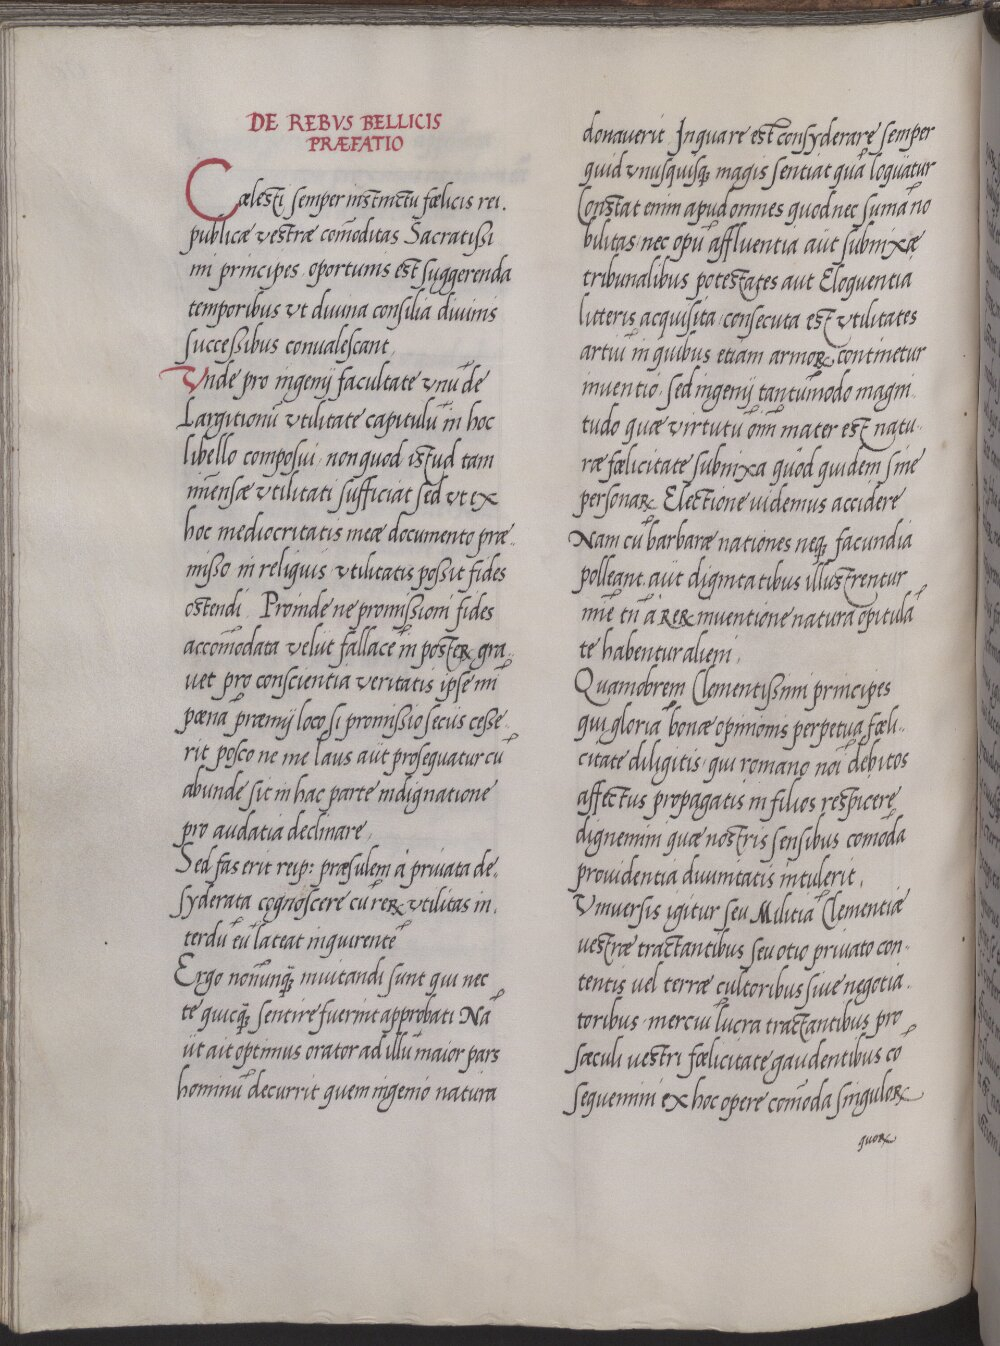 DE REBVS BELLICIS
PRÆFATIO
Cælesti semper instinctu fœlicis rei.
publicæ vestræ com̄oditas Sacratissi
mi principes oportunis est suggerenda
temporibus vt diuina consilia diuinis
successibus conualescant.
Vnde pro ingenij facultate vnū de
Largitionū vtilitate capitulū in hoc
libello composui non quod istud tam
inmensæ vtilitati sufficiat sed vt ex
hoc mediocritatis meæ documento præ.
misso in reliquis vtilitatis possit fides
ostendi. Proinde ne promissioni fides
accom̄odata velut fallacē in posteꝝ gra
uet pro conscientia veritatis ipse mī
pœnā præmij loco si promissio secus cesse.
rit posco ne me laus aut prosequatur cū
abunde sit in hac parte indignatione
pro audatia declinare.
Sed fas erit reip: præsulem a priuata de.
syderata cognoscere cū reꝝ vtilitas in.
terdū eū lateat inquirentē
Ergo nonūnqꝫ inuitandi sunt qui nec
te quicqꝫ sentire fuerint approbati Nā
ut ait optimus orator ad illū maior pars
hominū decurrit quem ingenio natura
donauerit In quare est consyderare semper
quid vnusquisqꝫ magis sentiat quā loquatur
Constat enim apud omnes quod nec sum̄a no
bilitas nec opū affluentia aut subnixæ
tribunalibus potestates aut Eloquentia
litteris acquisita consecuta est vtilitates
artiū in quibus etiam armoꝝ continetur
inuentio sed ingenij tantum̄odo magni.
tudo quæ virtutū om̄n mater est natu.
ræ fœlicitate subnixa quod quidem sine
personaꝝ Electione uidemus accidere
Nam cū barbaræ nationes neqꝫ facundia
polleant aut dignitatibus illustrentur
mīe tn̄ a reꝝ inuentione natura opitulā
te habentur alieni.
Quamobrem Clementissimi principes
qui gloriā bonæ opinionis perpetua fœli.
citate diligitis qui romano noī debitos
affectus propagatis in filios respicere
dignemini quæ nostris sensibus com̄oda
prouidentia diuinitatis intulerit.
Vniuersis igitur seu Militiā Clementiæ
uestræ tractantibus seu otio priuato con.
tentis uel terræ cultoribus siue negotia.
toribus merciū lucra tractantibus pro
sæculi uestri fœlicitate gaudentibus cō
sequemini ex hoc opere com̄oda singuloꝝ
quoꝝ